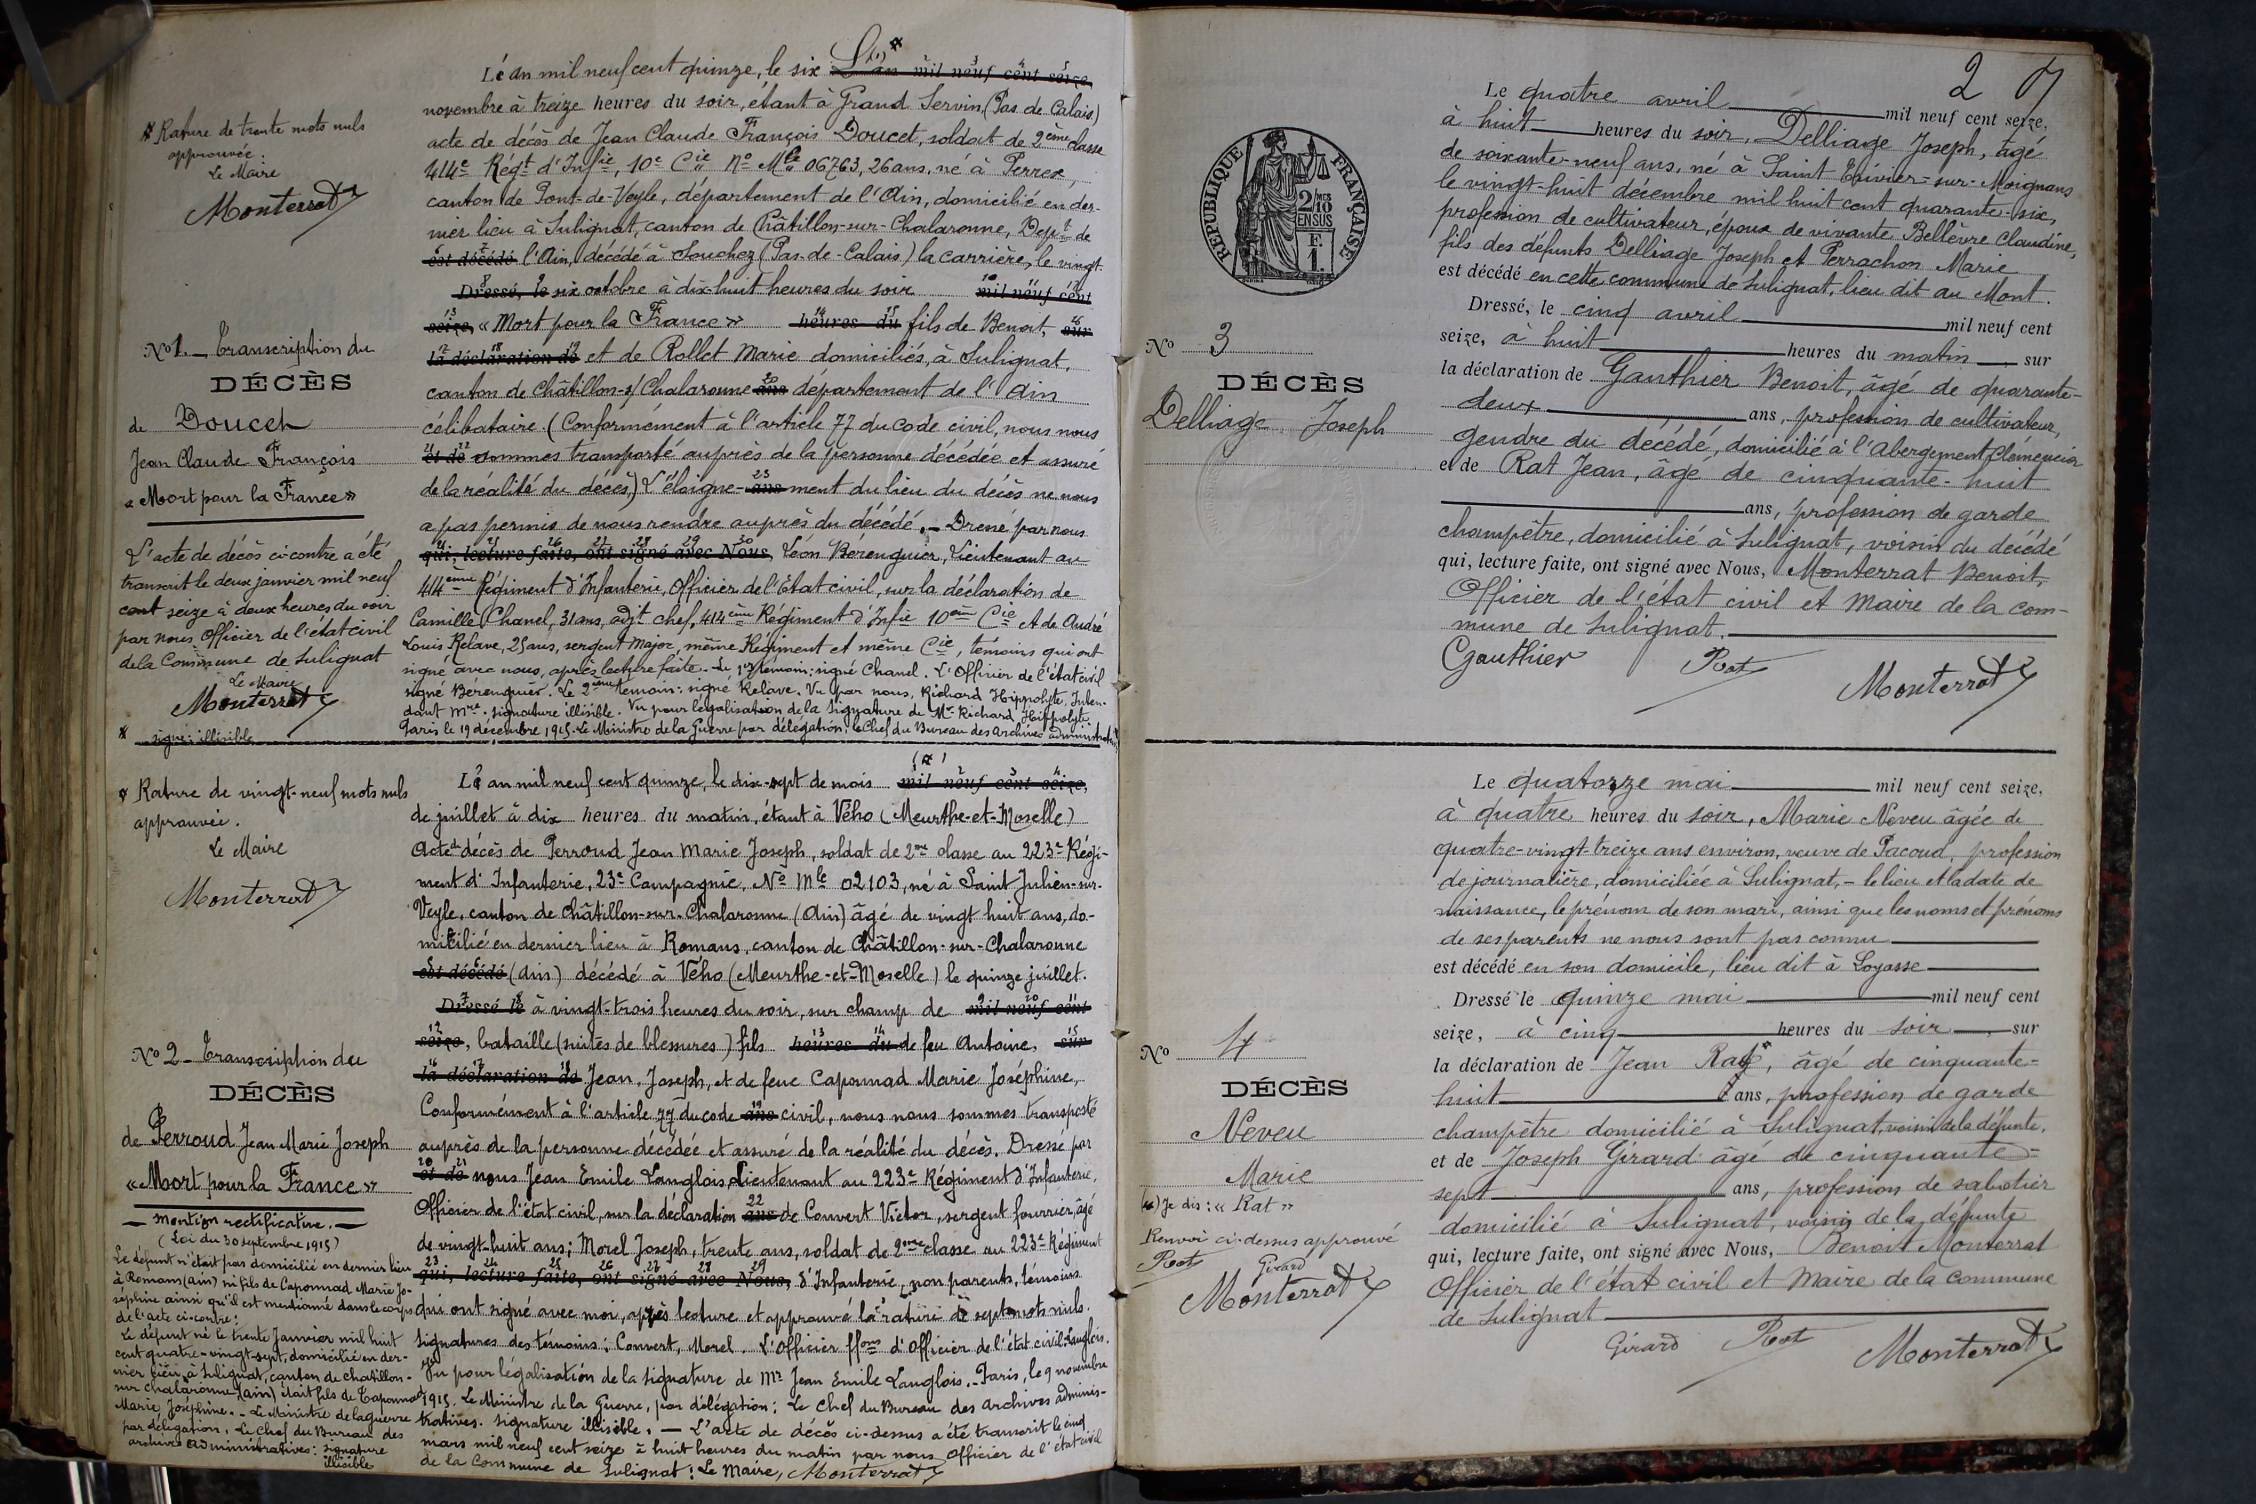 * Rature de trente mots nuls
approuvée.
Le Maire
Monterrat
N° 1. _ Transcription du
DÉCÈS
de Doucet
Jean Claude François
« Mort pour la France »
L'acte de décès ci-contre a été
transcrit le deux janvier mil neuf
cent seize à deux heures du soir
par nous Officier de l'état civil
de la Commune de Sulignat
Le Maire
Monterrat
* signé: illisible
L'an mil neuf cent quinze, le six L'an mil neuf cent seize,
novembre à treize heures du soir, étant à Grand Servin (Pas de Calais)
acte de décès de Jean Claude François Doucet, soldat de 2ème classe
414e Régt d'Infie, 10e Cie N° Mle 06763, 26 ans, né à Perrex,
canton de Pont-de-Veyle, département de l'Ain, domicilié en der-
nier lieu à Sulignat, canton de Châtillon-sur-Chalaronne, Dept de
est décédé l'Ain, décédé à Souchez (Pas-de-Calais) la carrière, le vingt-
Dressé, le six octobre à dix-huit heures du soir mil neuf cent
seize, « Mort pour la France » heures du fils de Benoit, sur
la déclaration de et de Rollet Marie domiciliés, à Sulignat,
canton de Châtillon-s/Chalaronne ans département de l'Ain
célibataire. (Conformément à l'article 77 du code civil, nous nous
et de sommes transporté auprès de la personne décédée et assuré
de la réalité du décès) L'éloigne- ans ment du lieu du décès ne nous
a pas permis de nous rendre auprès du décédé. _ Dressé par nous
qui, lecture faite, ont signé avec Nous, Léon Bérenguier, Lieutenant au
414ème Régiment d'Infanterie, Officier de l'Etat civil, sur la déclaration de
Camille Chanel, 31 ans, adjt chef, 414ème Régiment d'Infie 10ème Cie et de André
Louis Relave, 25 ans, sergent major, même Régiment et même Cie, témoins qui ont
signé avec nous, après lecture faite. Le 1er témoin: signé Chanel. L'Officier de l'état civil
signé Berenguier. Le 2ème témoin: signé Relave. Vu par nous, Richard Hippolyte, Inten-
dant mre. signature illisible. Vu pour légalisation de la signature de Mr Richard Hippolyte
Paris le 19 décembre 1915. Le Ministre de la Guerre par délégation: le Chef du Bureau des Archives administratives
* Rature de vingt-neuf mots nuls
approuvée.
Le Maire
Monterrat
N° 2 _ Transcription du
DÉCÈS
de Perroud Jean Marie Joseph
« Mort pour la France »
— mention rectificative. —
(Loi du 30 septembre 1915)
Le défunt n'était pas domicilié en dernier lieu
à Romans (ain) ni fils de Caponnad Marie Jo-
séphine ainsi qu'il est mentionné dans le corps
de l'acte ci-contre:
Le défunt né le trente Janvier mil huit
cent quatre-vingt-sept, domicilié en der-
nier lieu à Sulignat, canton de chatillon-
sur chalaronne (ain) était fils de Taponnat
Marie Joséphine. _ Le Ministre de la guerre
par délégation. Le chef du Bureau des
archives administratives: signature
illisible
L'an mil neuf cent quinze, le dix-sept de mois mil neuf cent seize,
de juillet à dix heures du matin, étant à Vého (Meurthe-et-Moselle)
Acte de décès de Perroud Jean Marie Joseph, soldat de 2me classe au 223e Régi-
ment d'Infanterie, 23e Compagnie, N° Mle 02103, né à Saint Julien-sur-
Veyle, canton de Châtillon-sur-Chalaronne (Ain) âgé de vingt huit ans, do-
micilié en dernier lieu à Romans, canton de Châtillon-sur-Chalaronne
est décédé (ain) décédé à Vého (Meurthe-et-Moselle) le quinze juillet.
Dressé le à vingt-trois heures du soir, sur champ de mil neuf cent
seize, bataille (suites de blessures) fils heures du de feu Antoine, sur
la déclaration de Jean, Joseph, et de feue Caponnad Marie Joséphine,
Conformément à l'article 77 du code ans civil, nous nous sommes transporté
auprès de la personne décédée et assuré de la réalité du décès. Dressé par
et de nous Jean Emile Langlois, Lieutenant au 223e Régiment d'Infanterie,
Officier de l'état civil, sur la déclaration ans de Convert Victor, sergent fourrier, âgé
de vingt-huit ans; Morel Joseph, trente ans, soldat de 2me classe au 223e Régiment
qui, lecture faite, ont signé avec Nous, d'Infanterie, non parents, témoins
qui ont signé avec moi, après lecture et approuvé la rature de sept mots nuls.
Signatures des témoins: Convert, Morel. L'Officier ffons d'Officier de l'état civil: Langlois.
Vu pour légalisation de la signature de Mr Jean Emile Langlois. _ Paris, le 9 novembre
1915. Le Ministre de la Guerre, par délégation: Le Chef du Bureau des Archives adminis-
tratives. signature illisible. — L'acte de décès ci-dessus a été transcrit le cinq
mars mil neuf cent seize à huit heures du matin par nous Officier de l'état civil
de la Commune de Sulignat: Le Maire, Monterrat
2
RÉPUBLIQUE FRANÇAISE
2/10 EN SUS
F. 1.
N° 3
DÉCÈS
Delliage Joseph
Le quatre avril mil neuf cent seize,
à huit heures du soir, Delliage Joseph, âgé
de soixante-neuf ans, né à Saint Trivier-sur-Moignans
le vingt-huit décembre mil huit cent quarante-six,
profession de cultivateur, époux de vivante Bellèvre Claudine,
fils des défunts Delliage Joseph et Perrachon Marie
est décédé en cette commune de Sulignat, lieu dit au Mont.
Dressé, le cinq avril mil neuf cent
seize, à huit heures du matin sur
la déclaration de Gauthier Benoit, âgé de quarante-
deux ans, profession de cultivateur,
gendre du décédé, domicilié à l'Abergement Clémenciat
et de Rat Jean, âgé de cinquante-huit
ans, profession de garde
champêtre, domicilié à Sulignat, voisin du décédé
qui, lecture faite, ont signé avec Nous, Monterrat Benoit,
Officier de l'état civil et Maire de la com-
mune de Sulignat.
Gauthier Rat Monterrat
N° 4
DÉCÈS
Neveu
Marie
(*) Je dis: « Rat »
Renvoi ci-dessus approuvé
Rat Girard
Monterrat
Le quatorze mai mil neuf cent seize,
à quatre heures du soir, Marie Neveu âgée de
quatre-vingt-treize ans environ, veuve de Pacoud, profession
de journalière, domiciliée à Sulignat, – le lieu et la date de
naissance, le prénom de son mari, ainsi que les noms et prénoms
de ses parents ne nous sont pas connu
est décédé en son domicile, lieu dit à Loyasse
Dressé le quinze mai mil neuf cent
seize, à cinq heures du soir sur
la déclaration de Jean Rat*, âgé de cinquante-
huit ans, profession de garde
champêtre domicilié à Sulignat, voisin de la défunte,
et de Joseph Girard âgé de cinquante-
sept ans, profession de sabotier
domicilié à Sulignat, voisin de la défunte
qui, lecture faite, ont signé avec Nous, Benoit Monterrat
Officier de l'état civil et Maire de la Commune
de Sulignat
Girard Rat Monterrat